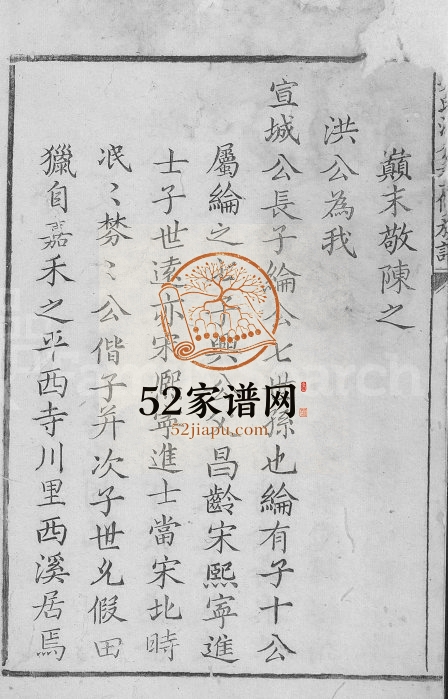 巔末敬陳之
洪公為我
宣城公長子綸公七世孫也綸有子十公
屬綸之子興公父昌齡宋熙寧進
士子世遠亦宋熙寧進士當宋北時
泯〻棼〻公偕子并次子世允假田
獵自嘉禾之平西寺川里西溪居焉
52家谱网
52jiapu.com